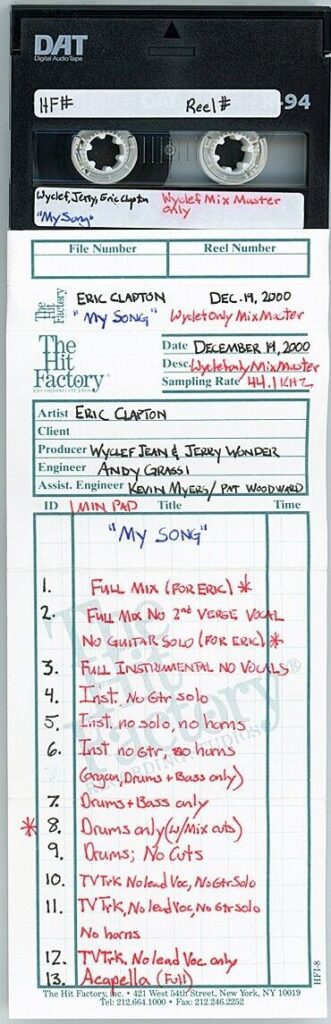 DAT
Digital Audio Tape
-94
HF# Reel#
Wyclef, Jerry, Eric Clapton Wyclef Mix Master
only
"My Song"
File Number Reel Number
The Hit Factory
ERIC CLAPTON DEC. 19, 2000
"MY SONG" Wyclef only Mix Master
The
Hit
Factory
Date DECEMBER 19, 2000
Desc. Wyclef only Mix Master
Sampling Rate 44.1 KHZ
Artist ERIC CLAPTON
Client
Producer WYCLEF JEAN & JERRY WONDER
Engineer ANDY GRASSI
Assist. Engineer KEVIN MYERS/ PAT WOODWARD
ID 1 MIN PAD Title Time
"MY SONG"
1. FULL MIX (FOR ERIC) *
2. FULL MIX NO 2nd VERSE VOCAL
NO GUITAR SOLO (FOR ERIC) *
3. FULL INSTRUMENTAL NO VOCALS
4. Inst. No Gtr solo
5. Inst. no solo, no horns
6. Inst no Gtr, no horns
(organ, Drums + Bass only)
7. Drums + Bass only
* 8. Drums only (w/Mix cuts)
9. Drums; No Cuts
10. TVTrk No lead Voc, No Gtr Solo
11. TVTrk, No lead Voc, No Gtr solo
No horns
12. TVTrk, No lead Voc only
13. Acapella (Full)
The Hit Factory®
RECORDING STUDIOS
HFI-8
The Hit Factory, Inc. • 421 West 54th Street, New York, NY 10019
Tel: 212.664.1000 • Fax: 212.246.2252